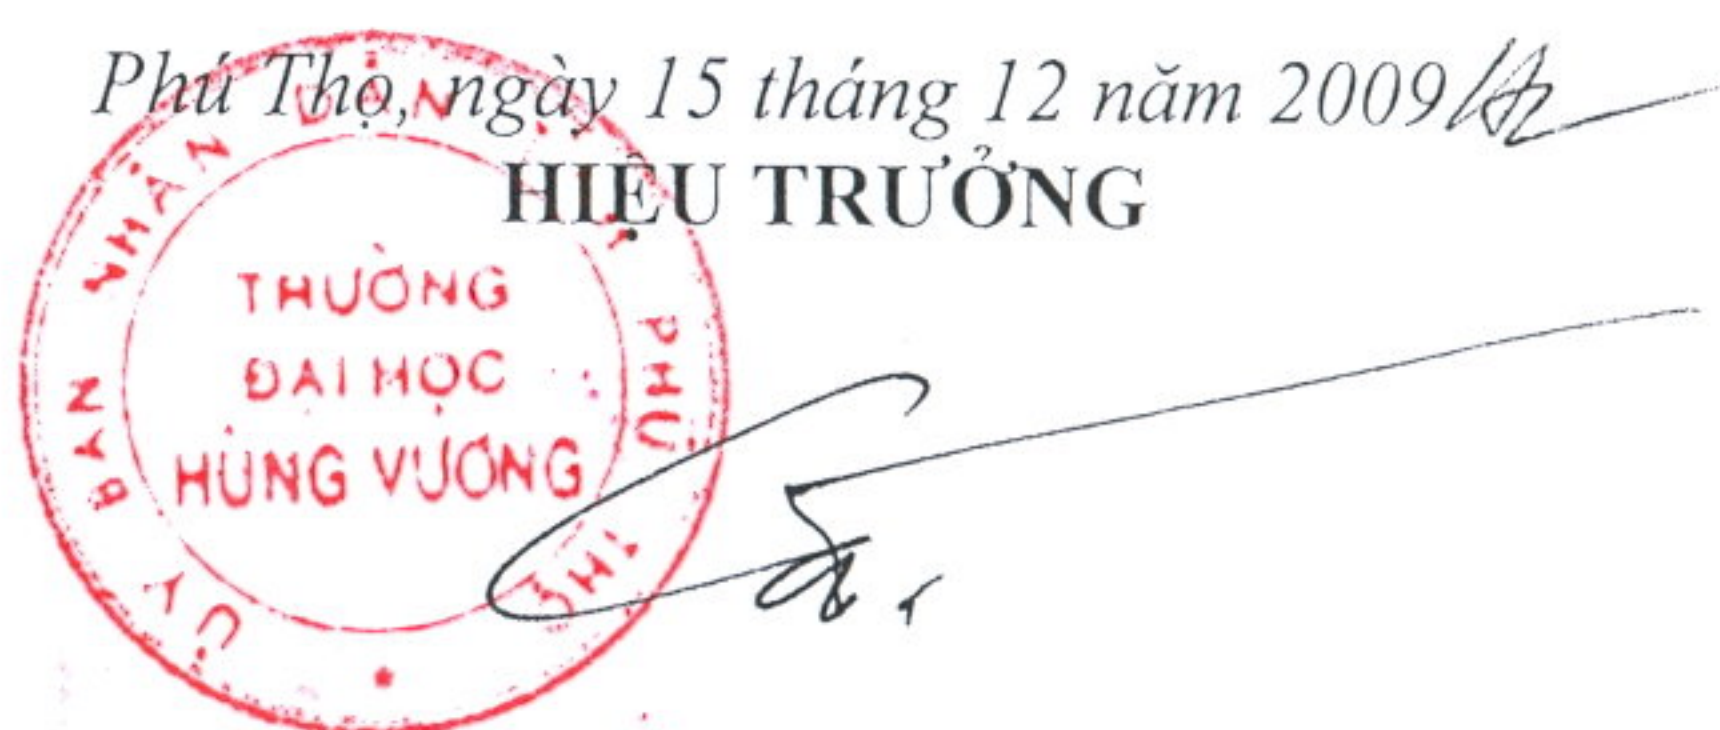 Phú Thọ, ngày 15 tháng 12 năm 2009
HIỆU TRƯỞNG
ỦY BAN NHÂN DÂN TỈNH PHÚ THỌ
TRƯỜNG
ĐẠI HỌC
HÙNG VƯƠNG